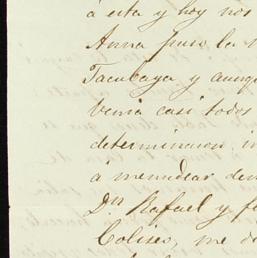 á esta y hoy nos
Anna puso la
Tacubaya y aunq
venia casi todos
determinacion in
á menudear de
Dn Rafael y f
Coliseo, me d